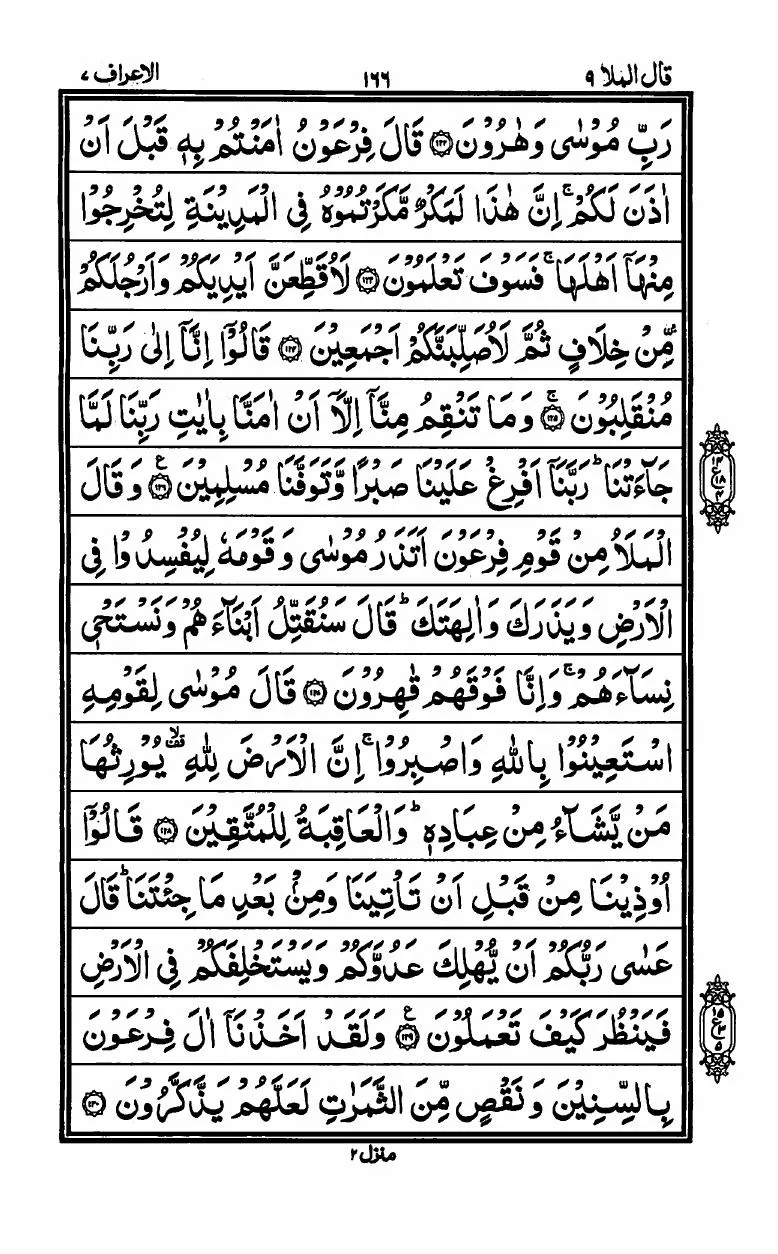 قال الملا ٩
١٦٦
الاعراف ٧
رَبِّ مُوْسٰى وَهٰرُوْنَ ﴿١٢٢﴾ قَالَ فِرْعَوْنُ اٰمَنْتُمْ بِهٖ قَبْلَ اَنْ
اٰذَنَ لَكُمْ ۚ اِنَّ هٰذَا لَمَكْرٌ مَّكَرْتُمُوْهُ فِى الْمَدِيْنَةِ لِتُخْرِجُوْا
مِنْهَاۤ اَهْلَهَا ۚ فَسَوْفَ تَعْلَمُوْنَ ﴿١٢٣﴾ لَاُقَطِّعَنَّ اَيْدِيَكُمْ وَاَرْجُلَكُمْ
مِّنْ خِلَافٍ ثُمَّ لَاُصَلِّبَنَّكُمْ اَجْمَعِيْنَ ﴿١٢٤﴾ قَالُوْۤا اِنَّاۤ اِلٰى رَبِّنَا
مُنْقَلِبُوْنَ ۚ ﴿١٢٥﴾ وَمَا تَنْقِمُ مِنَّاۤ اِلَّاۤ اَنْ اٰمَنَّا بِاٰيٰتِ رَبِّنَا لَمَّا
جَآءَتْنَا ؕ رَبَّنَاۤ اَفْرِغْ عَلَيْنَا صَبْرًا وَّتَوَفَّنَا مُسْلِمِيْنَ ﴿١٢٦﴾ ع وَقَالَ
الْمَلَاُ مِنْ قَوْمِ فِرْعَوْنَ اَتَذَرُ مُوْسٰى وَقَوْمَهٗ لِيُفْسِدُوْا فِى
الْاَرْضِ وَيَذَرَكَ وَاٰلِهَتَكَ ؕ قَالَ سَنُقَتِّلُ اَبْنَآءَهُمْ وَنَسْتَحْىٖ
نِسَآءَهُمْ ۚ وَاِنَّا فَوْقَهُمْ قٰهِرُوْنَ ﴿١٢٧﴾ قَالَ مُوْسٰى لِقَوْمِهِ
اسْتَعِيْنُوْا بِاللّٰهِ وَاصْبِرُوْا ۚ اِنَّ الْاَرْضَ لِلّٰهِ ۙ يُوْرِثُهَا
مَنْ يَّشَآءُ مِنْ عِبَادِهٖ ؕ وَالْعَاقِبَةُ لِلْمُتَّقِيْنَ ﴿١٢٨﴾ قَالُوْۤا
اُوْذِيْنَا مِنْ قَبْلِ اَنْ تَاْتِيَنَا وَمِنْۢ بَعْدِ مَا جِئْتَنَا ؕ قَالَ
عَسٰى رَبُّكُمْ اَنْ يُّهْلِكَ عَدُوَّكُمْ وَيَسْتَخْلِفَكُمْ فِى الْاَرْضِ
فَيَنْظُرَ كَيْفَ تَعْمَلُوْنَ ﴿١٢٩﴾ ع وَلَقَدْ اَخَذْنَاۤ اٰلَ فِرْعَوْنَ
بِالسِّنِيْنَ وَنَقْصٍ مِّنَ الثَّمَرٰتِ لَعَلَّهُمْ يَذَّكَّرُوْنَ ﴿١٣٠﴾
منزل ٢